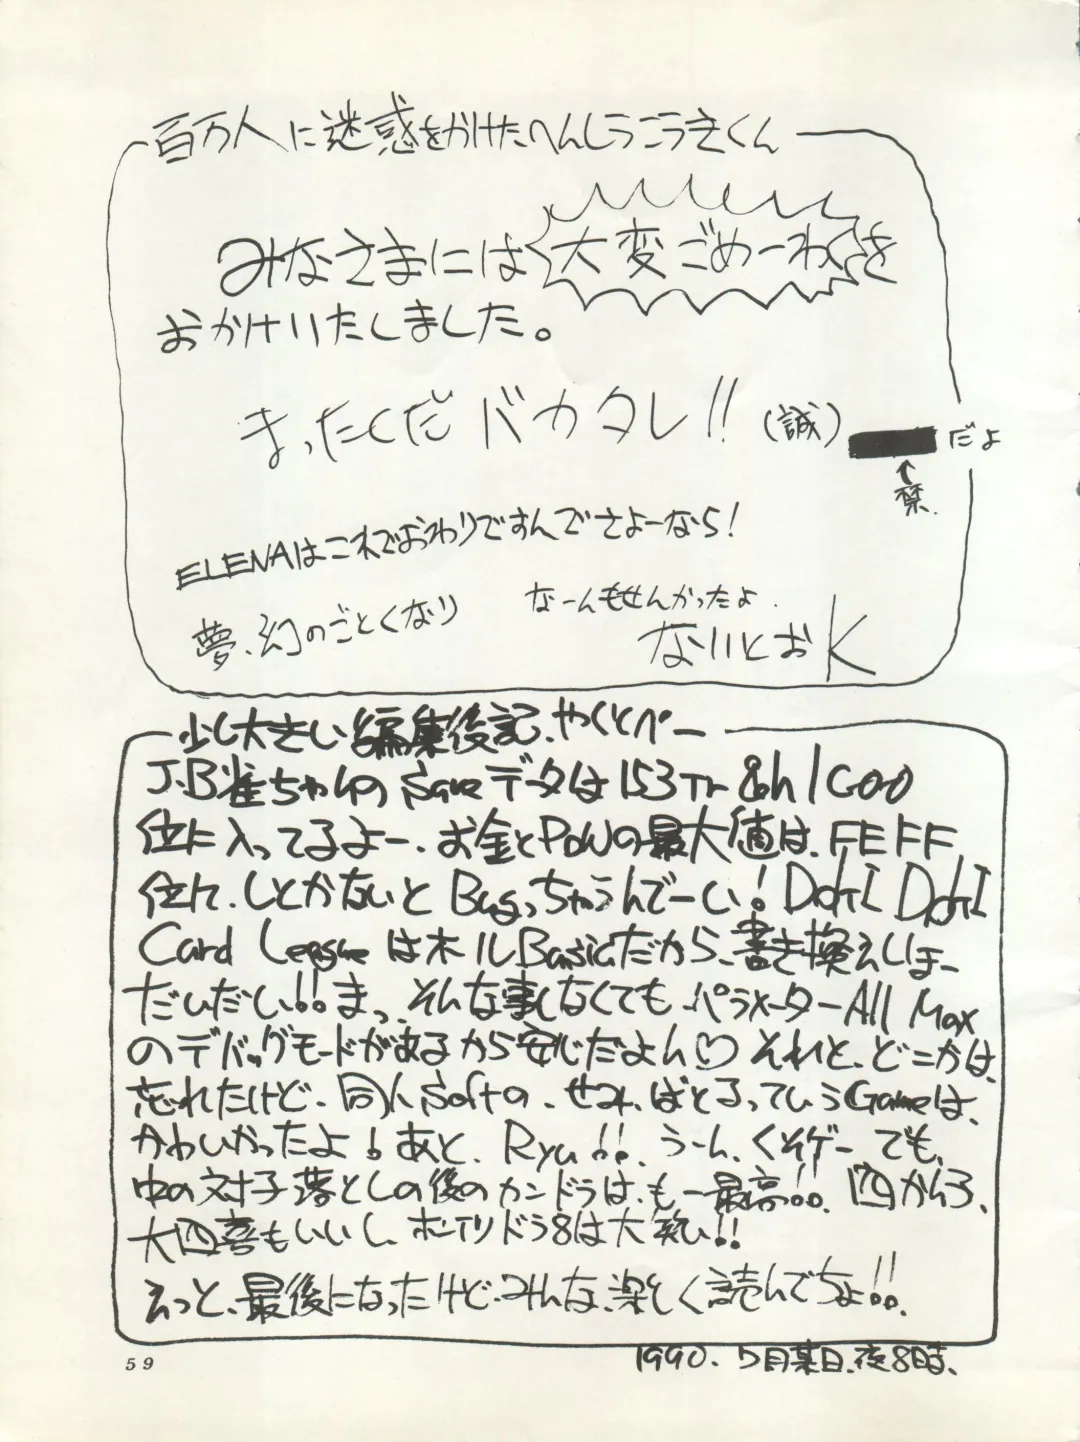 百万人に迷惑をかけたへんしうこうきくん
みなさまには大変ごめーわくを
おかけいたしました。
まったくだ バカタレ!! (誠) だよ
禁.
ELENAはこれでおわりですんでさよーなら!
夢、幻のごとくなり
なーんもせんかったよ.
ないとおK
少し大きい編集後記、やくとぺー
J.B雀ちゃんのSaveデータは153Tr 8h 1C00
位に入ってるよー、お金とPoWの最大値は、FEFF
位に、しとかないとBugっちゃうんでーしい!
Card Leagueは木ルBasicだから、書き換えしほー
だいだしい!!まっ、そんな事しなくても、パラメーターAll Max
のデバッグモードがあるから安心だよん♡ それと、どこかは、
忘れたけど、同人Softの、せみ、ばとるっていうGameは、
かわいかったよ!あと、Ryu!!、うーん、くそゲーでも、
中の対子落としの後のカンドラは、も一最高!!。四かんつ、
大四喜もいいし、ホンイツドラ8は大笑い!!
えっと、最後になったけど、みんな、楽しく読んでちょ!!.
1990.7月某日、夜8時、
59